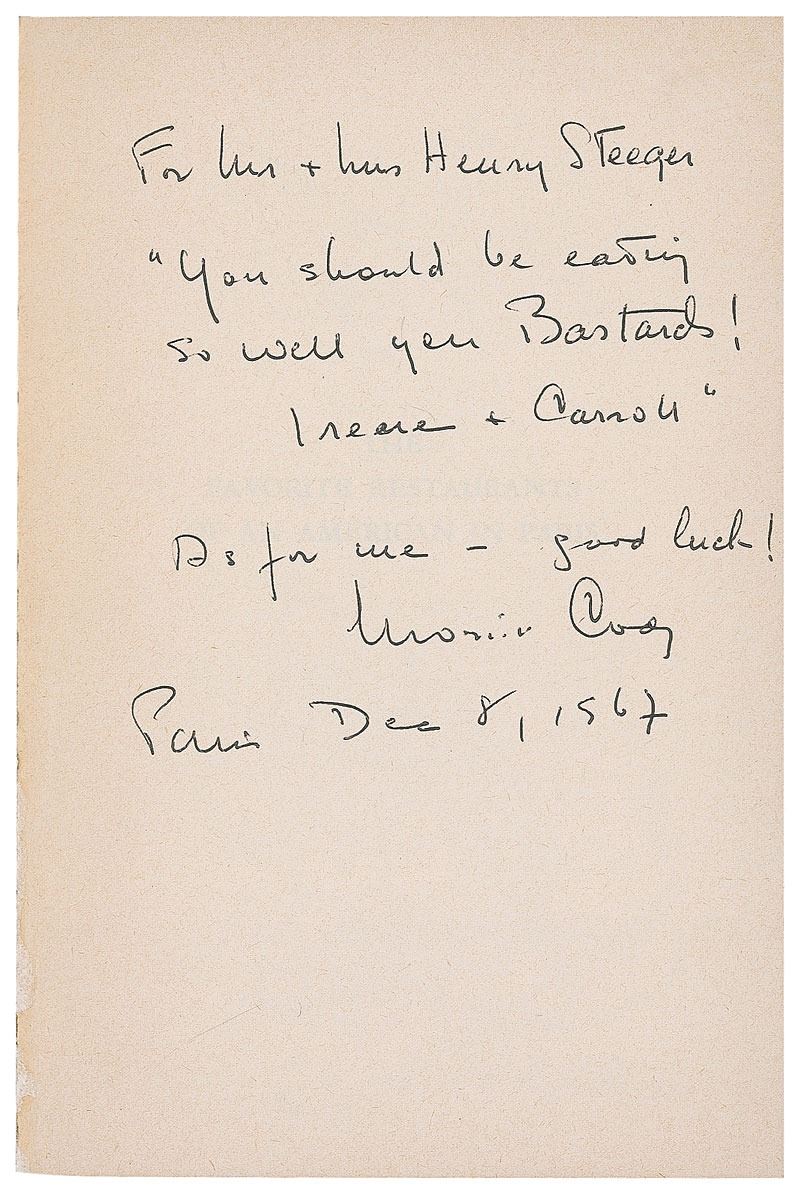 For Mr + Mrs Henry Steeger
"You should be eating
so well you Bastards!
Irene + Carroll"
FAVORITE RESTAURANTS
AN AMERICAN IN PARIS
As for me - good luck!
Paris Dec 8, 1967